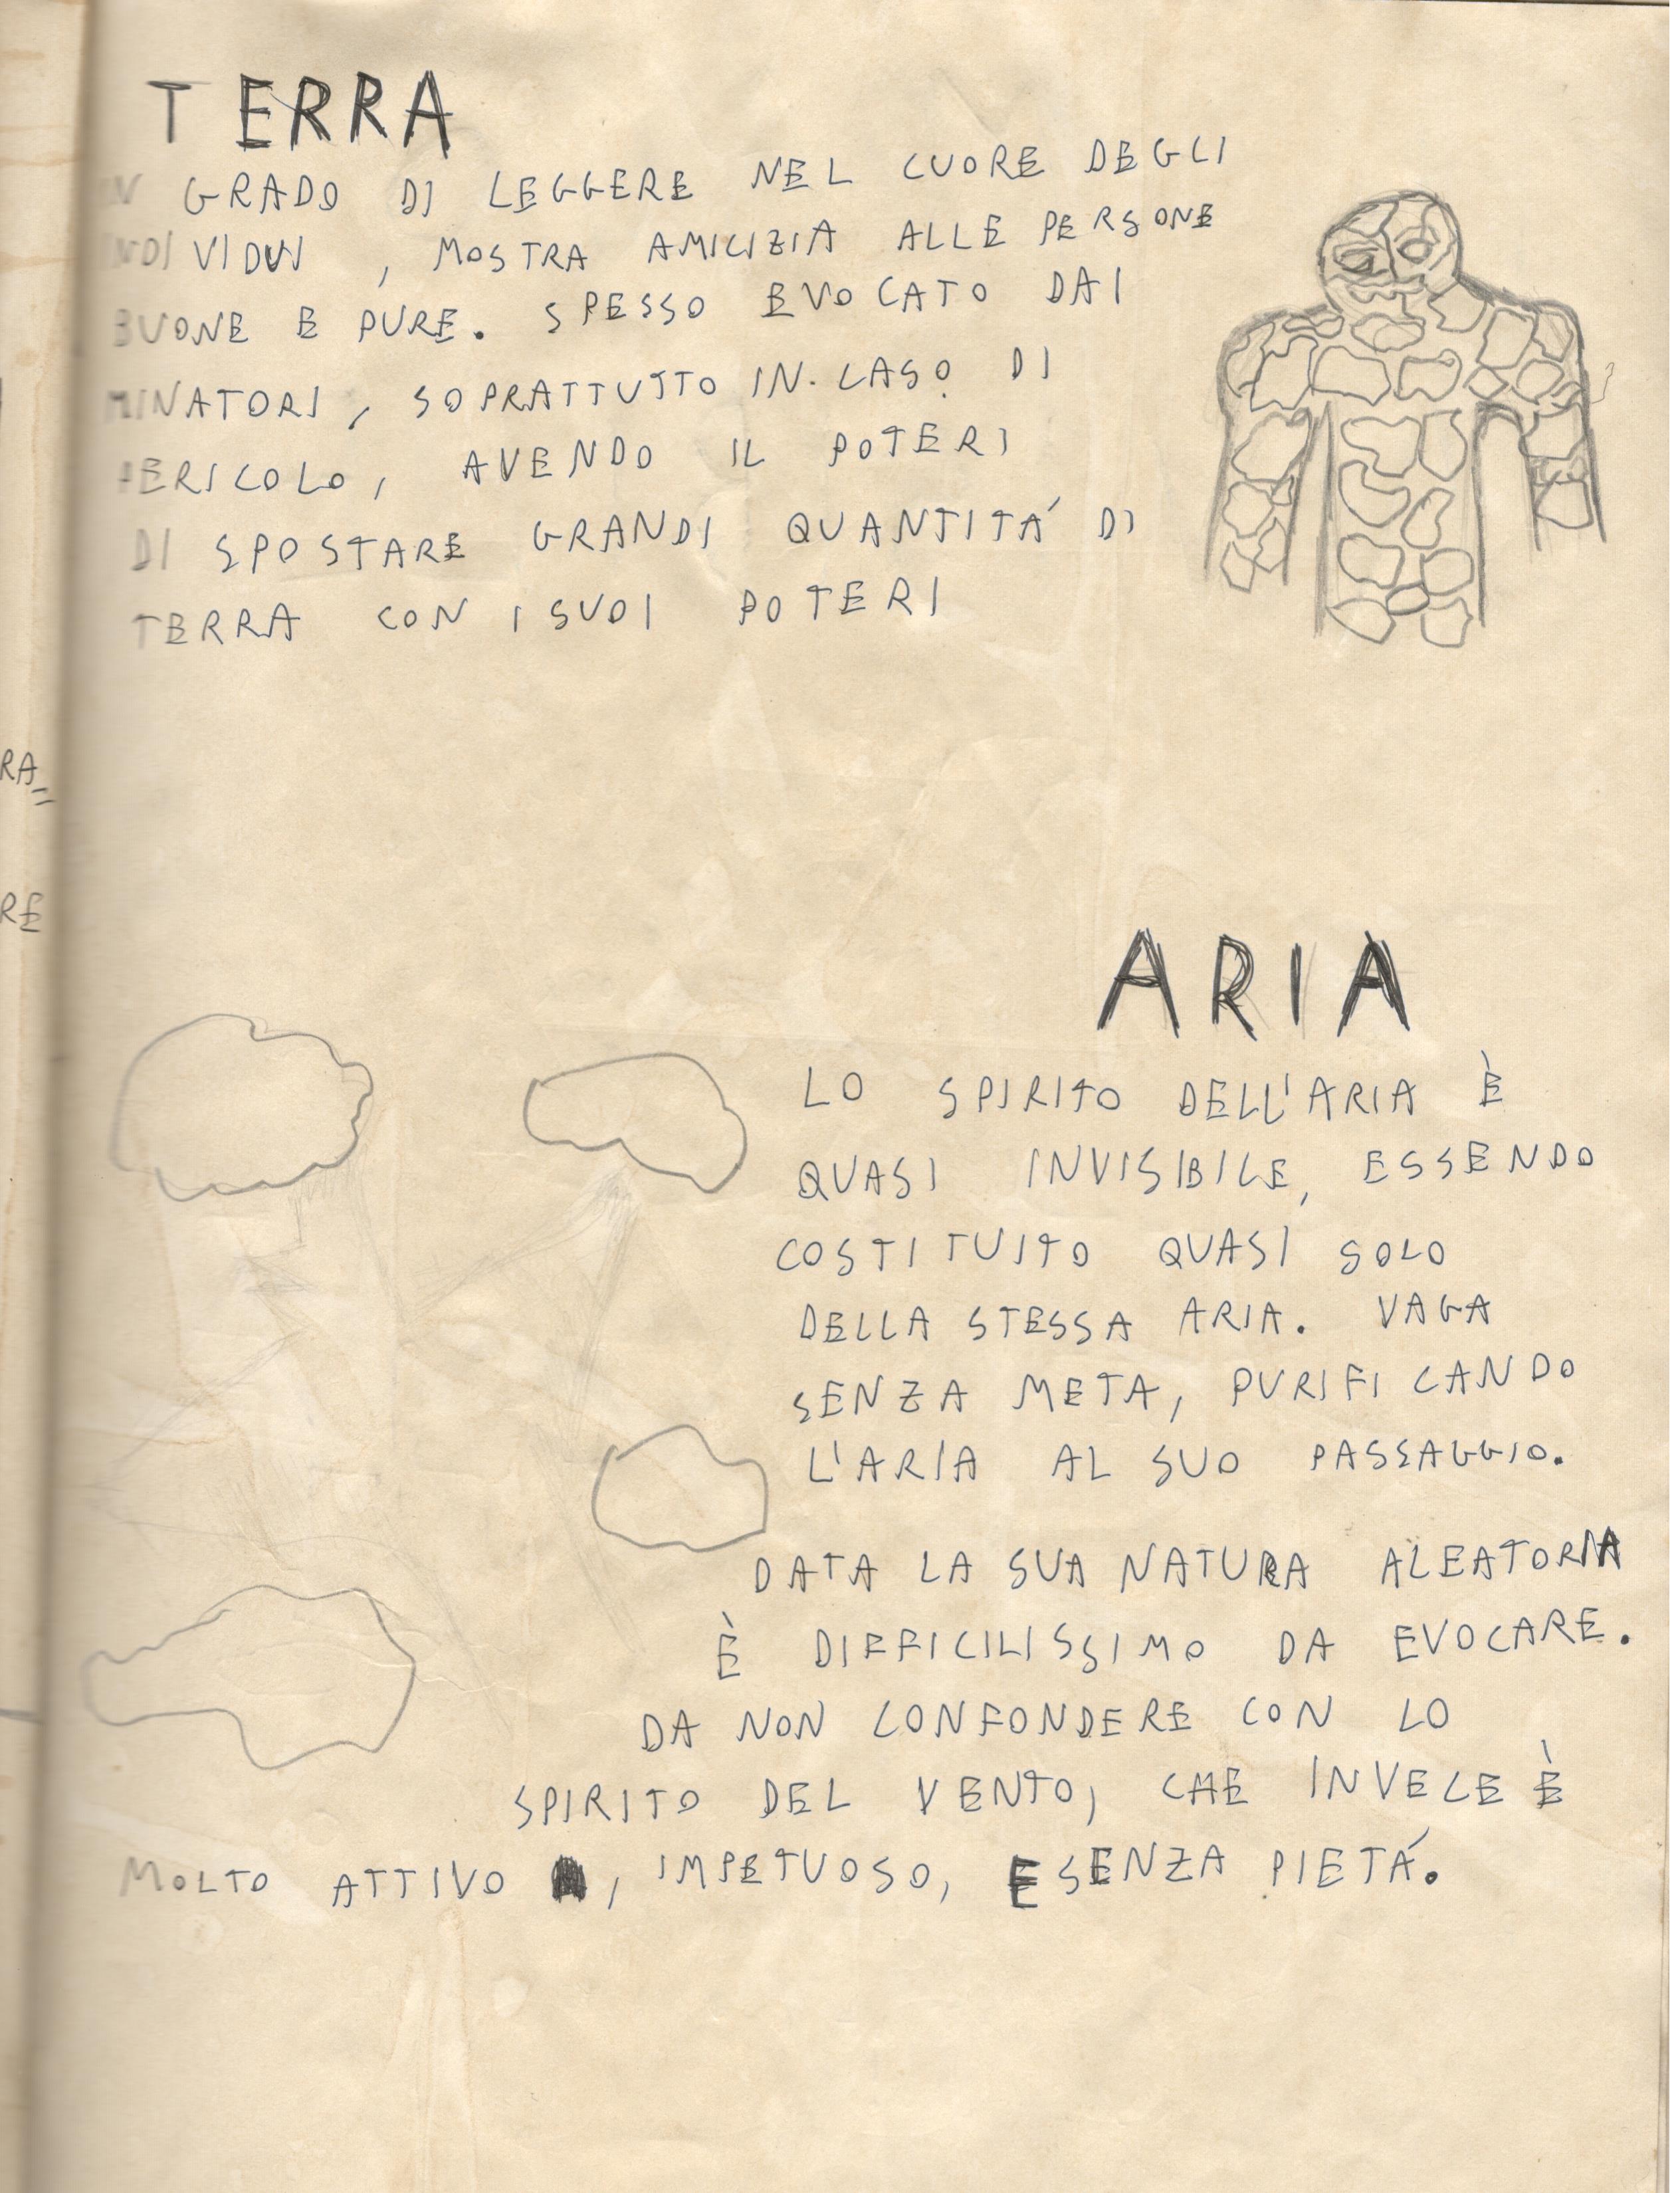 TERRA
IN GRADO DI LEGGERE NEL CUORE DEGLI
INDIVIDUI, MOSTRA AMICIZIA ALLE PERSONE
BUONE E PURE. SPESSO EVOCATO DAI
MINATORI, SOPRATTUTTO IN CASO DI
PERICOLO, AVENDO IL POTERI
DI SPOSTARE GRANDI QUANTITÁ DI
TERRA CON I SUOI POTERI
RA
RE
ARIA
LO SPIRITO DELL'ARIA È
QUASI INVISIBILE, ESSENDO
COSTITUITO QUASI SOLO
DELLA STESSA ARIA. VAGA
SENZA META, PURIFICANDO
L'ARIA AL SUO PASSAGGIO.
DATA LA SUA NATURA ALEATORIA
È DIFFICILISSIMO DA EVOCARE.
DA NON CONFONDERE CON LO
SPIRITO DEL VENTO, CHE INVECE È
MOLTO ATTIVO, IMPETUOSO, E SENZA PIETÁ.